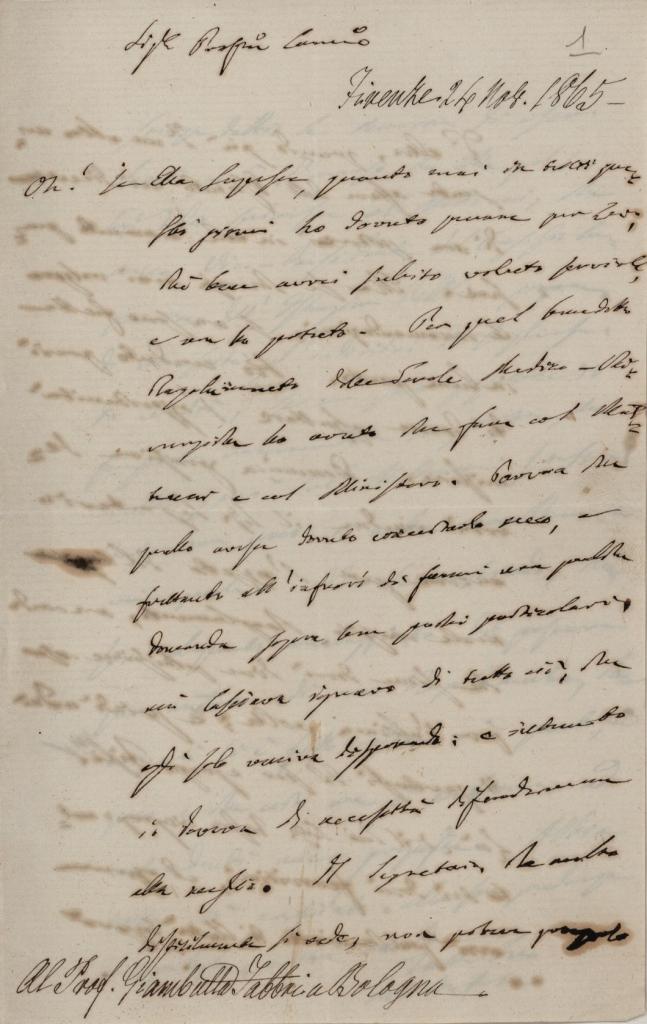 1
Firenze 24 Nov. 1865 —
Oh! se Ella sapesse, quanto mai in tutti que=
sti giorni ho dovuto penare per Lei,
Ché bene avrei subito voluto servirla,
e non ho potuto. Per quel benedetto
Regolamento delle Scuole Medico-Chi=
rurgiche ho avuto che fare col Mat=
teucci e col Ministero. Pareva che
quello avesse dovuto concertarlo meco, e
frattanto all'infuori di farmi una qualche
domanda sopra ben pochi particolari,
mi lasciava ignaro di tutto ciò, che
egli solo veniva disponendo; e
io doveva di necessità
alla meglio. Il Segretario, che molto
difficilmente si vede, non poteva
Al Prof. Giambatta Fabbri a Bologna